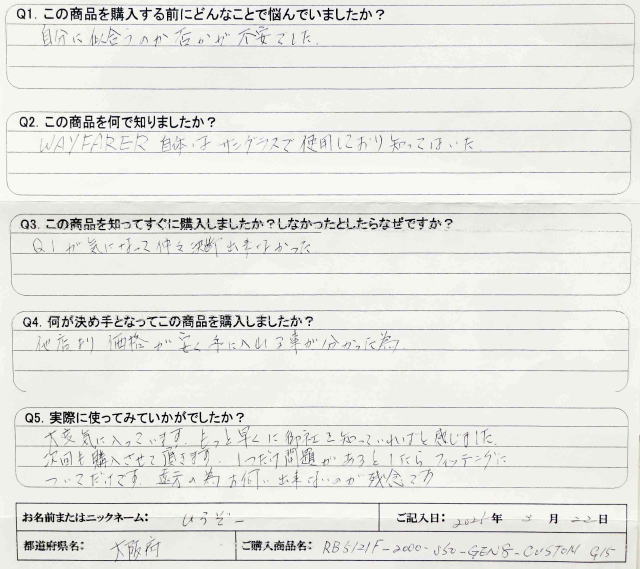 Q1. この商品を購入する前にどんなことで悩んでいましたか？
自分に似合うのか否かが不安でした.
Q2. この商品を何で知りましたか？
WAYFARER 自体はサングラスで使用しており知ってはいた.
Q3. この商品を知ってすぐに購入しましたか？しなかったとしたらなぜですか？
Q1が気になって仲々決断出来なかった
Q4. 何が決め手となってこの商品を購入しましたか？
他店より価格が安く手に入れる事が分かった為
Q5. 実際に使ってみていかがでしたか？
大変気に入っています. もっと早くに御社を知っていればと感じました.
次回も購入させて頂きます. 1つだけ問題があるとしたらフィッテングに
ついてだけです. 遠方の為 出来ないのが残念です
お名前またはニックネーム: ひうぞー
ご記入日: 202 年 月 22日
都道府県名: 大阪府
ご購入商品名: RB5121F-2000-S50-GENS-CUSTOM G15